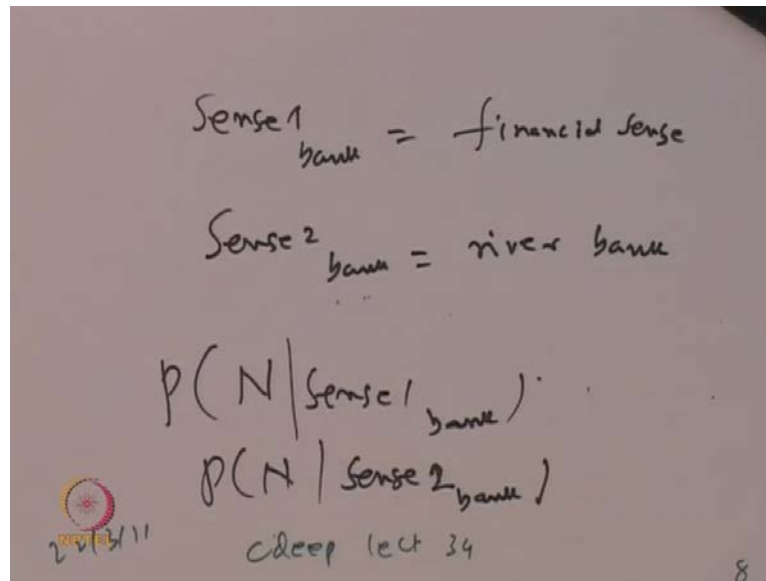 Sense1 bank = financial sense
Sense2 bank = river bank
P(N|Sense1 bank)
P(N|Sense2 bank)
NPTEL
cdeep lect 34
8